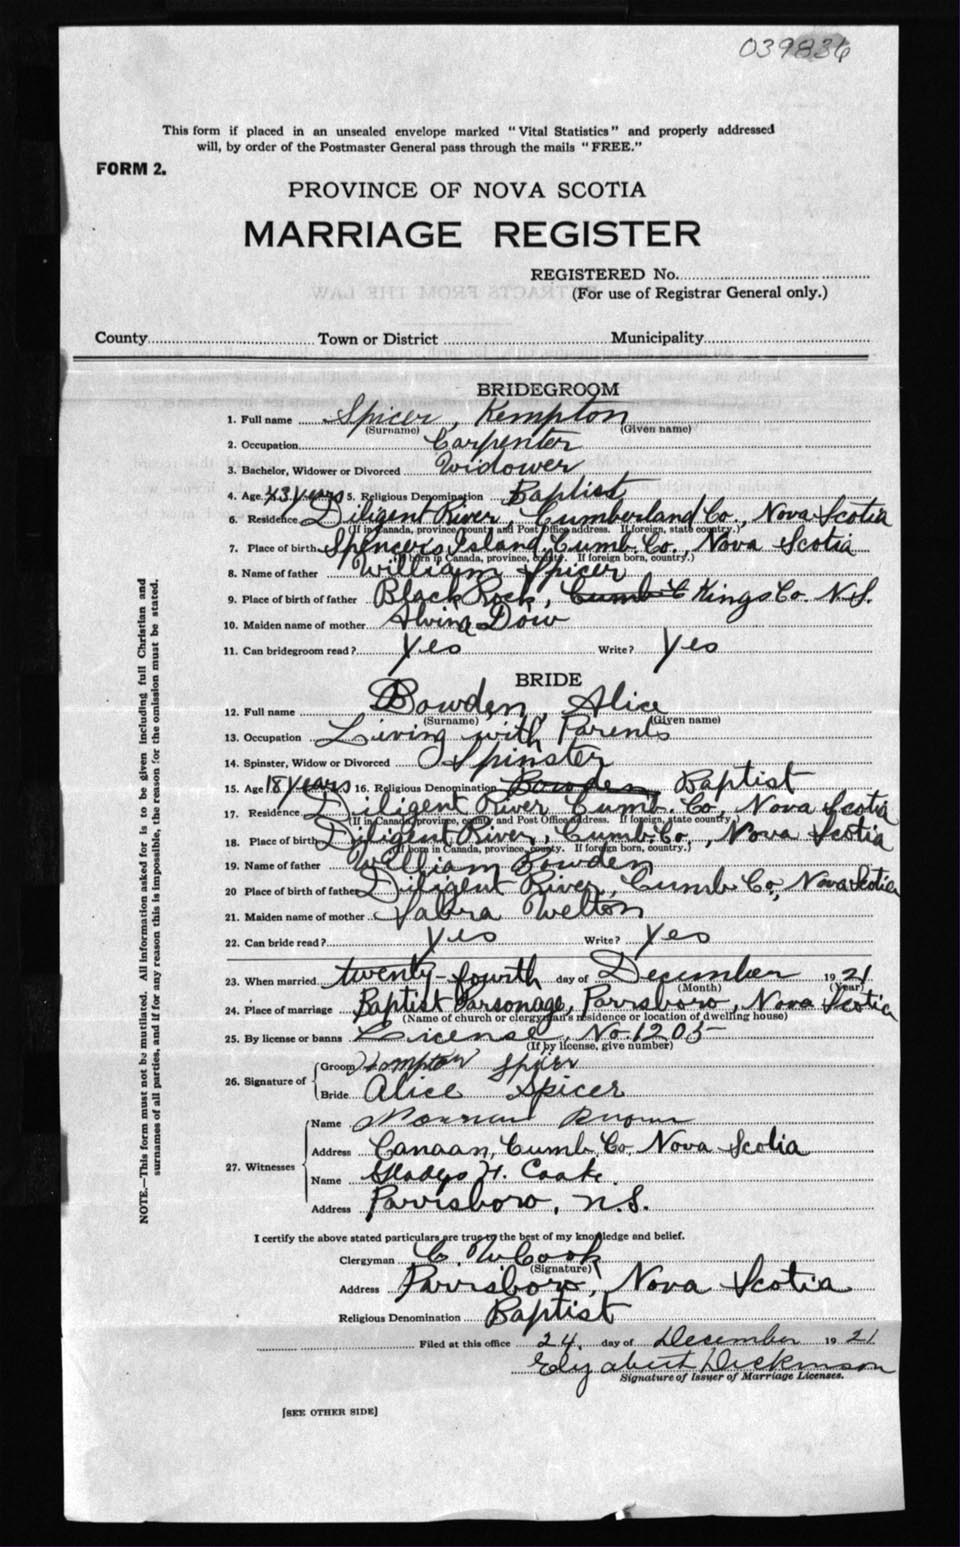 039836
This form if placed in an unsealed envelope marked "Vital Statistics" and properly addressed
will, by order of the Postmaster General pass through the mails "FREE."
FORM 2.
PROVINCE OF NOVA SCOTIA
MARRIAGE REGISTER
REGISTERED No.
(For use of Registrar General only.)
County Town or District Municipality
BRIDEGROOM
1. Full name Spicer, Kempton
(Surname) (Given name)
2. Occupation Carpenter
3. Bachelor, Widower or Divorced Widower
4. Age 43 years 5. Religious Denomination Baptist
6. Residence Diligent River, Cumberland Co., Nova Scotia
(If in Canada, province, county and Post Office address. If foreign, state country.)
7. Place of birth Spencer's Island, Cumb. Co., Nova Scotia
(If born in Canada, province, county. If foreign born, country.)
8. Name of father William Spicer
9. Place of birth of father Black Rock, Cumb C Kings Co. N.S.
10. Maiden name of mother Alvina Dow
11. Can bridegroom read? Yes Write? Yes
BRIDE
12. Full name Bowden, Alice
(Surname) (Given name)
13. Occupation Living with Parents
14. Spinster, Widow or Divorced Spinster
15. Age 18 years 16. Religious Denomination Bowden Baptist
17. Residence Diligent River Cumb. Co, Nova Scotia
(If in Canada, province, county and Post Office address. If foreign, state country.)
18. Place of birth Diligent River, Cumb. Co., Nova Scotia
(If born in Canada, province, county. If foreign born, country.)
19. Name of father William Bowden
20 Place of birth of father Diligent River, Cumb. Co., Nova Scotia
21. Maiden name of mother Salura Welton
22. Can bride read? Yes Write? Yes
23. When married twenty-fourth day of December 1921
(Month) (Year)
24. Place of marriage Baptist Parsonage, Parrsboro, Nova Scotia
(Name of church or clergyman's residence or location of dwelling house)
25. By license or banns License, No. 1205
(If by license, give number)
26. Signature of Groom Kempton Spicer
Bride Alice Spicer
27. Witnesses
Name
Address Canaan, Cumb. Co. Nova Scotia
Name Gladys H. Cook
Address Parrsboro, N.S.
I certify the above stated particulars are true to the best of my knowledge and belief.
Clergyman C. W. Cook
(Signature)
Address Parrsboro, Nova Scotia
Religious Denomination Baptist
Filed at this office 24, day of December 1921
Elizabeth Dickinson
Signature of Issuer of Marriage Licenses.
[SEE OTHER SIDE]
NOTE.—This form must not be mutilated. All information asked for is to be given including full Christian and
surnames of all parties, and if for any reason this is impossible, the reason for the omission must be stated.